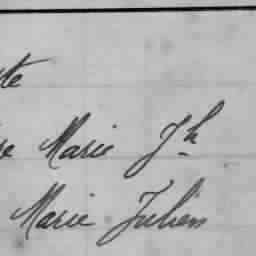 te
re Marie Jh
Marie Julien